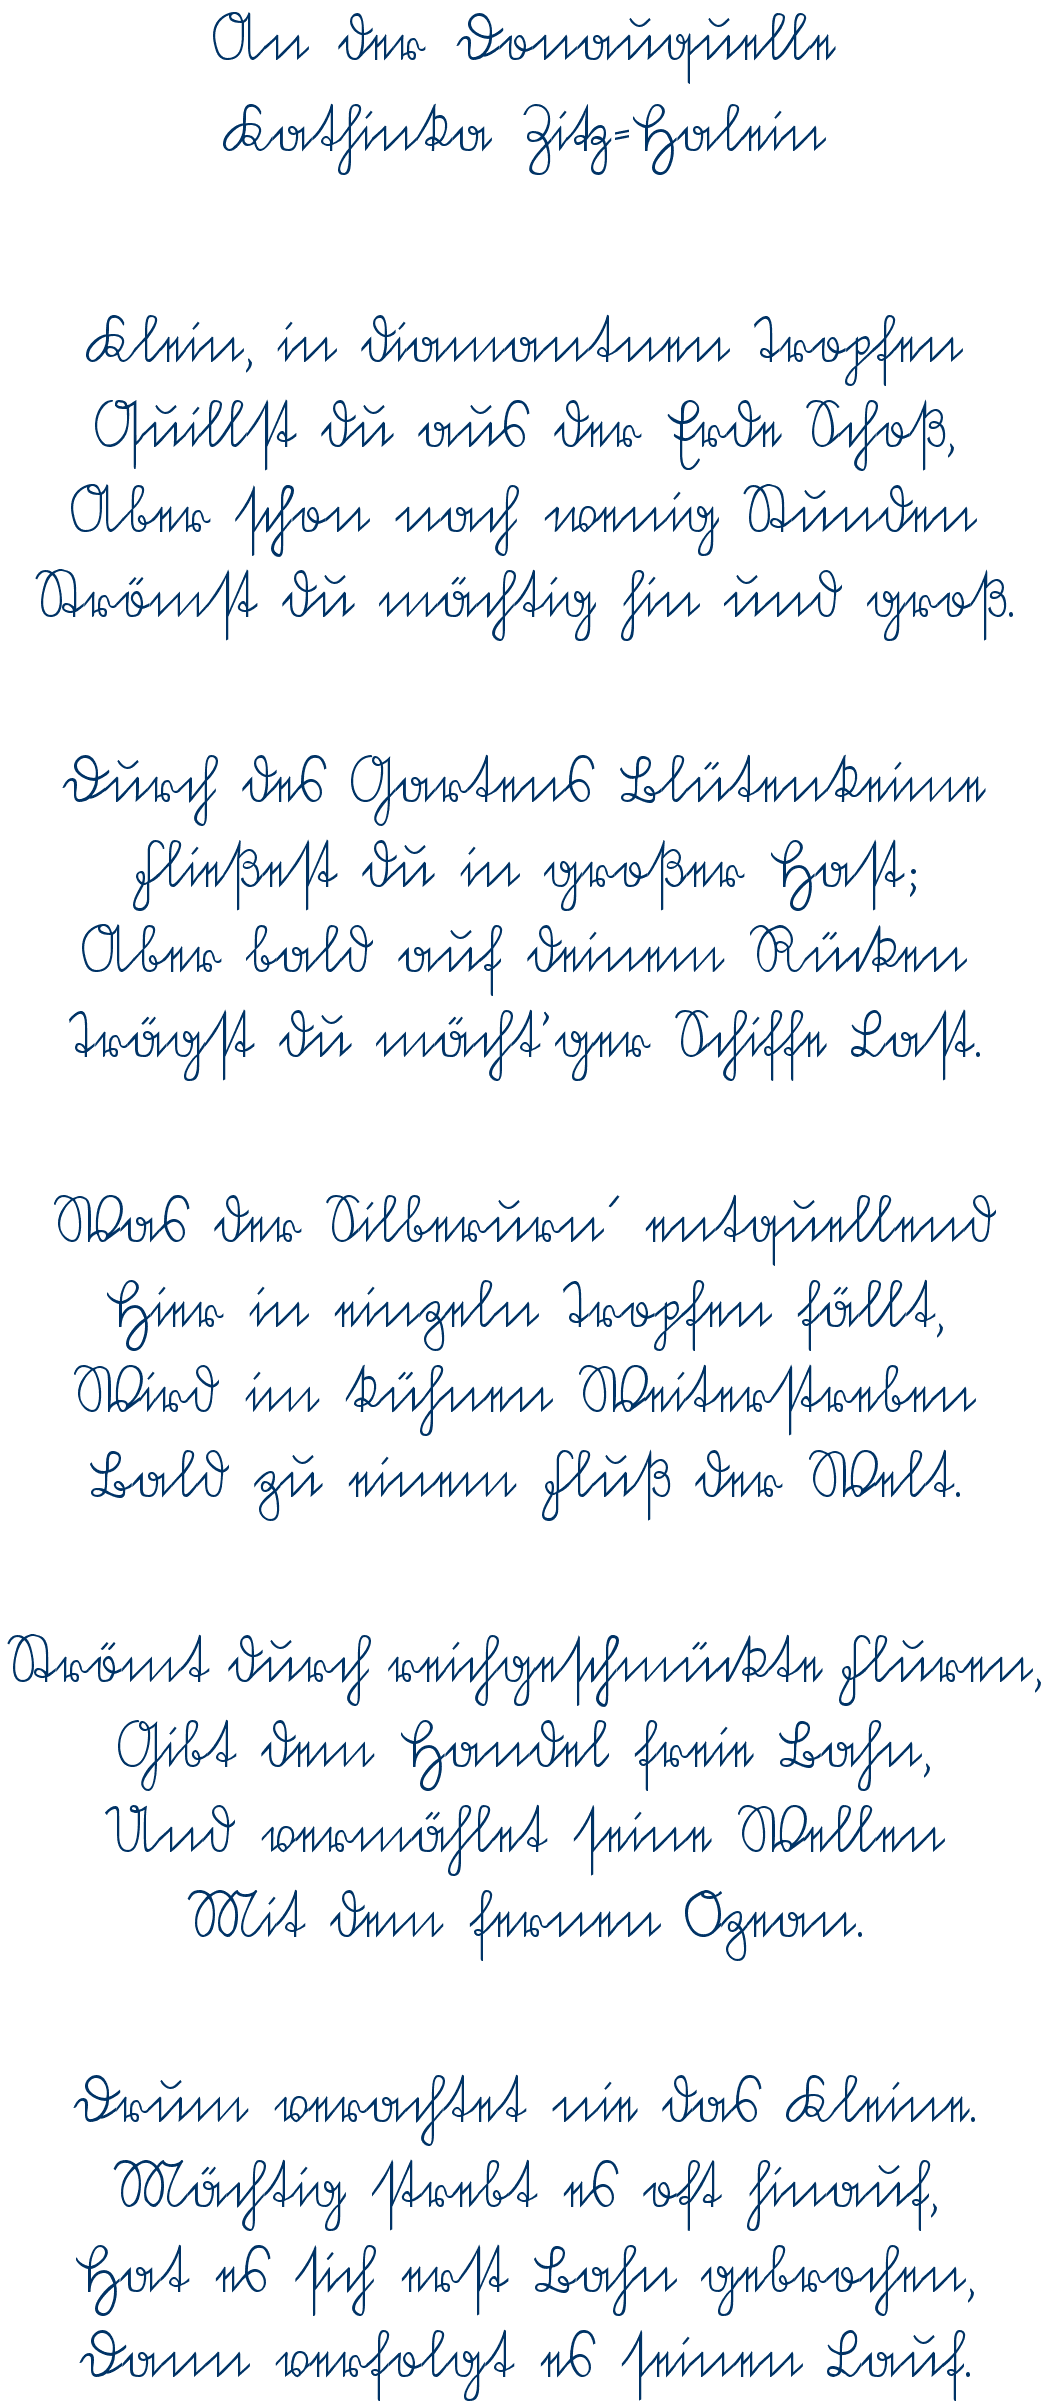 An der Donauquelle
Kathinka Zitz=Halein
Klein, in diamantnen Tropfen
Quillst du aus der Erde Schoß,
Aber schon nach wenig Stunden
Strömst du mächtig hin und groß.
Durch des Gartens Blütenkeime
Fließest du in großer Hast;
Aber bald auf deinem Rücken
Trägst du mächt'ger Schiffe Last.
Was der Silberurn´ entquellend
Hier in einzeln Tropfen fällt,
Wird im kühnen Weiterstreben
Bald zu einem Fluß der Welt.
Strömt durch reichgeschmückte Fluren,
Gibt dem Handel freie Bahn,
Und vermählet seine Wellen
Mit dem fernen Ozean.
Drum verachtet nie das Kleine.
Mächtig strebt es oft hinauf,
Hat es sich erst Bahn gebrochen,
Dann verfolgt es seinen Lauf.